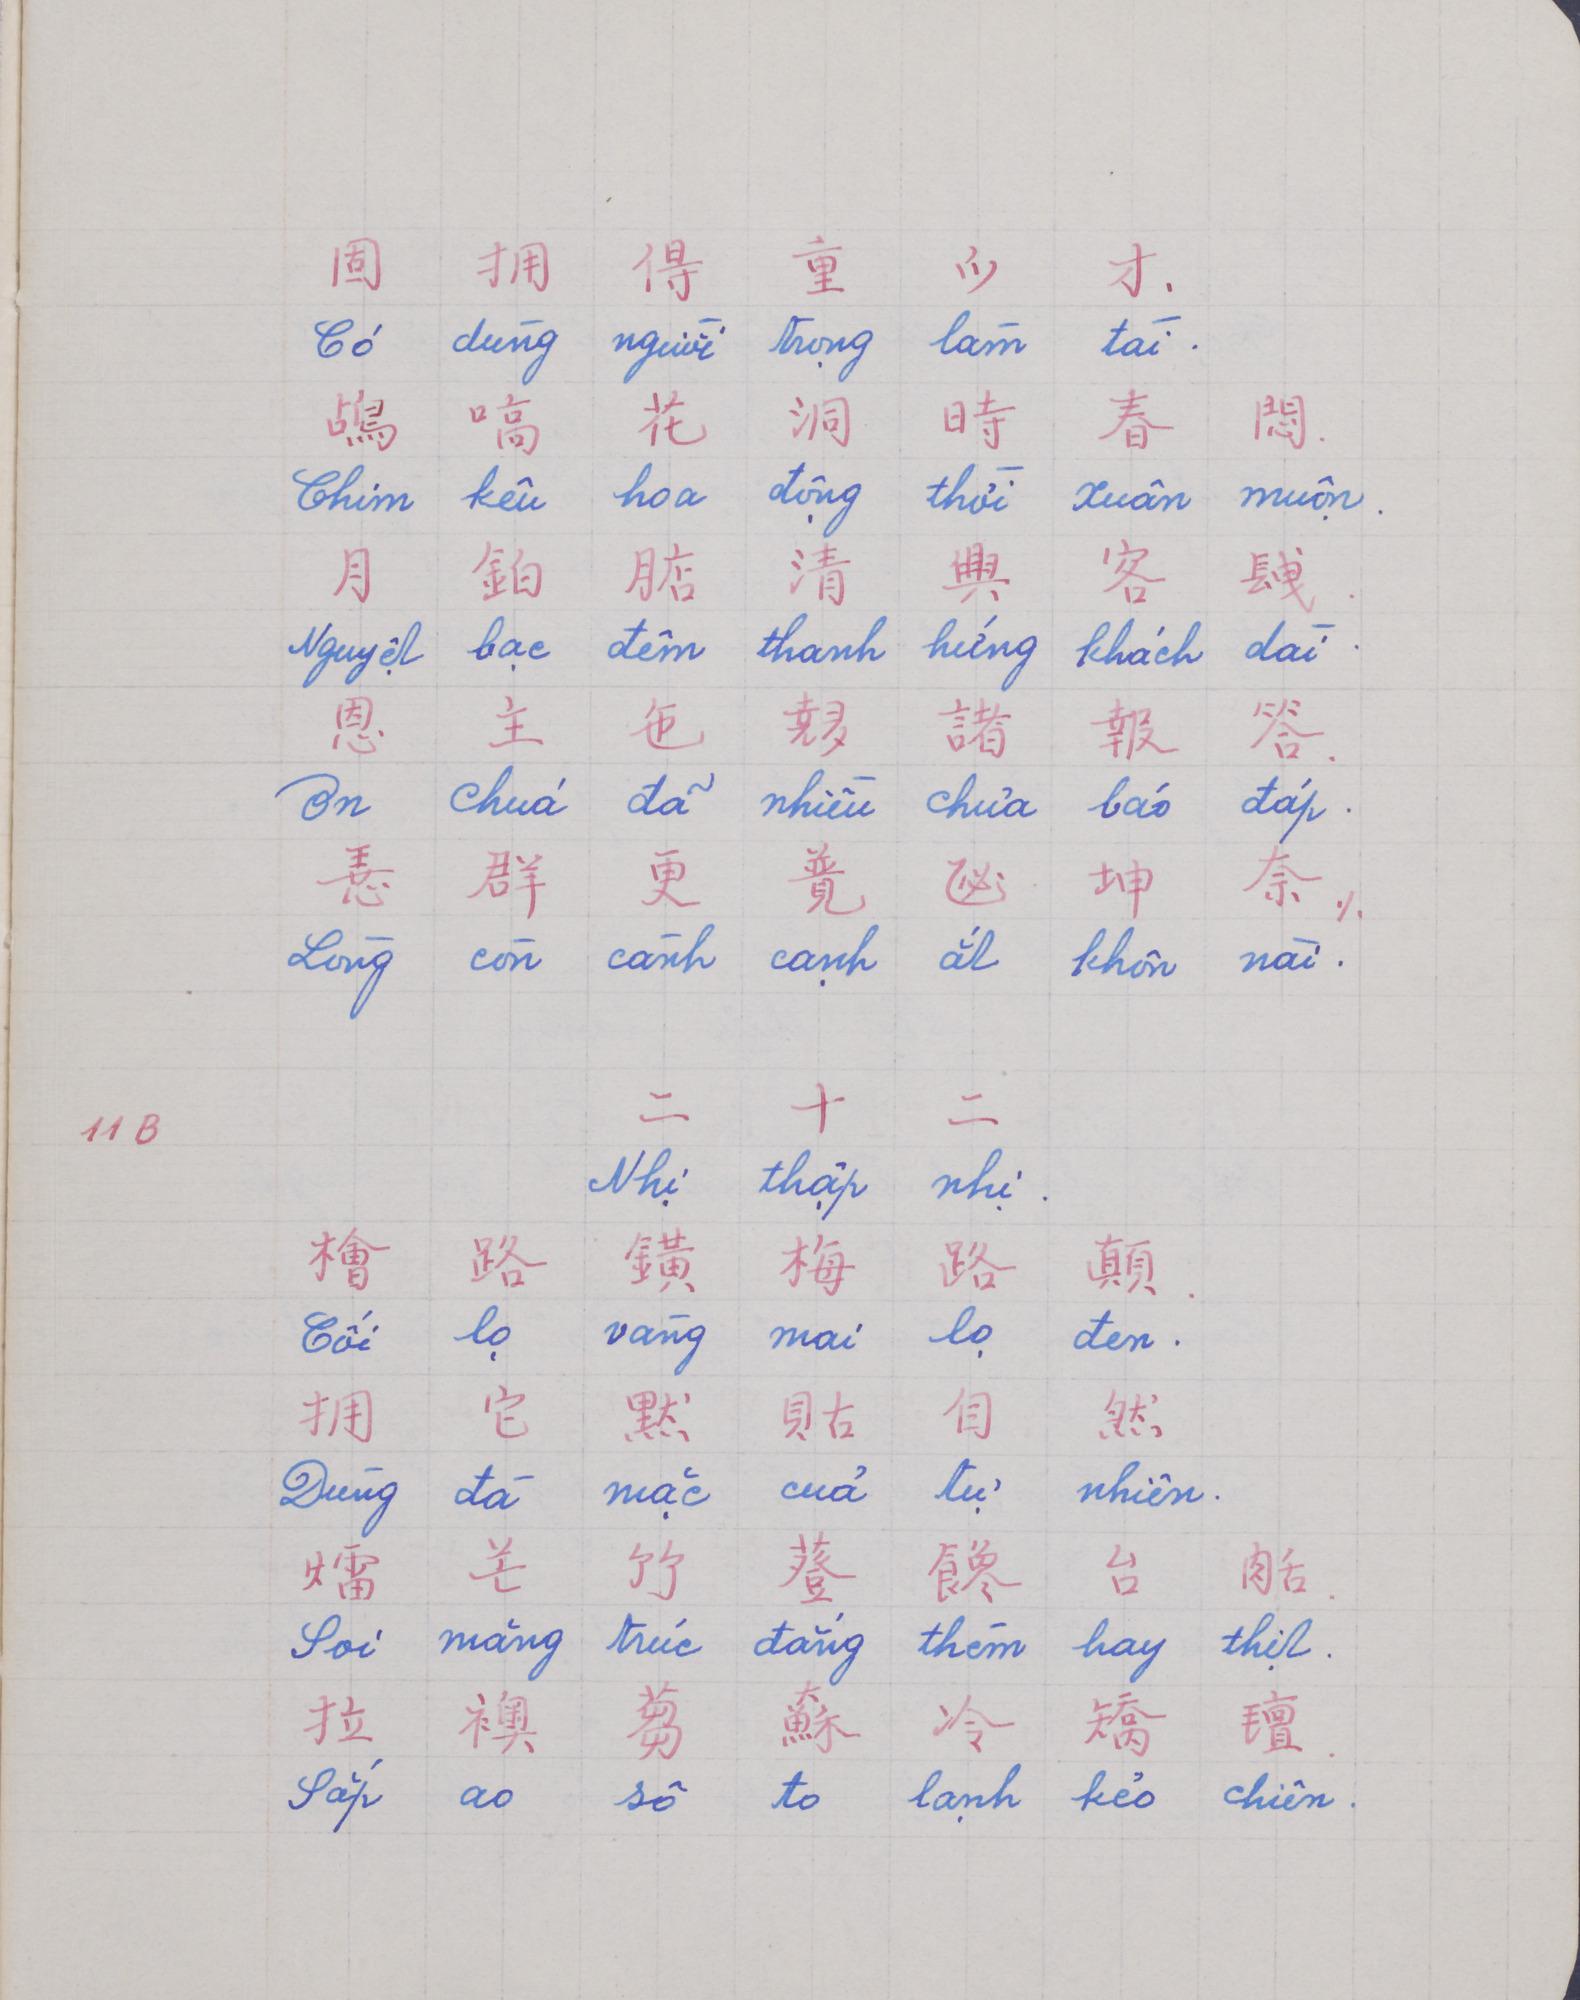 固 拥 得 重 𫜵 才.
Có dùng người trọng làm tài.
鴣 嗃 花 洞 時 春 悶.
Chim kêu hoa động thời xuân muộn.
月 鉑 𣎀 清 興 客 𨱽.
Nguyệt bạc đêm thanh hứng khách dài.
恩 主 㐌 𡗊 諸 報 答.
Ơn chuá đã nhiều chưa báo đáp.
𢚸 群 更 覓 乙 坤 奈
Lòng còn cành cạnh ắt khôn nài.
二 十 二
11 B
Nhị thập nhị.
檜 路 鐄 梅 路 顛.
Cối lọ vàng mai lọ đen.
拥 它 默 貼 自 然
Dùng đà mặc cuả tự nhiên.
㷟 芒 竹 䔲 饞 台 𦧘.
Soi măng trúc đắng thèm hay thịt.
拉 襖 蒭 蘇 冷 矯 氊.
Sắp ao sô to lạnh kẻo chiên.